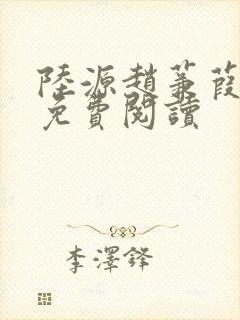 陸源趙蒹葭
免費閱讀
李澤鋒